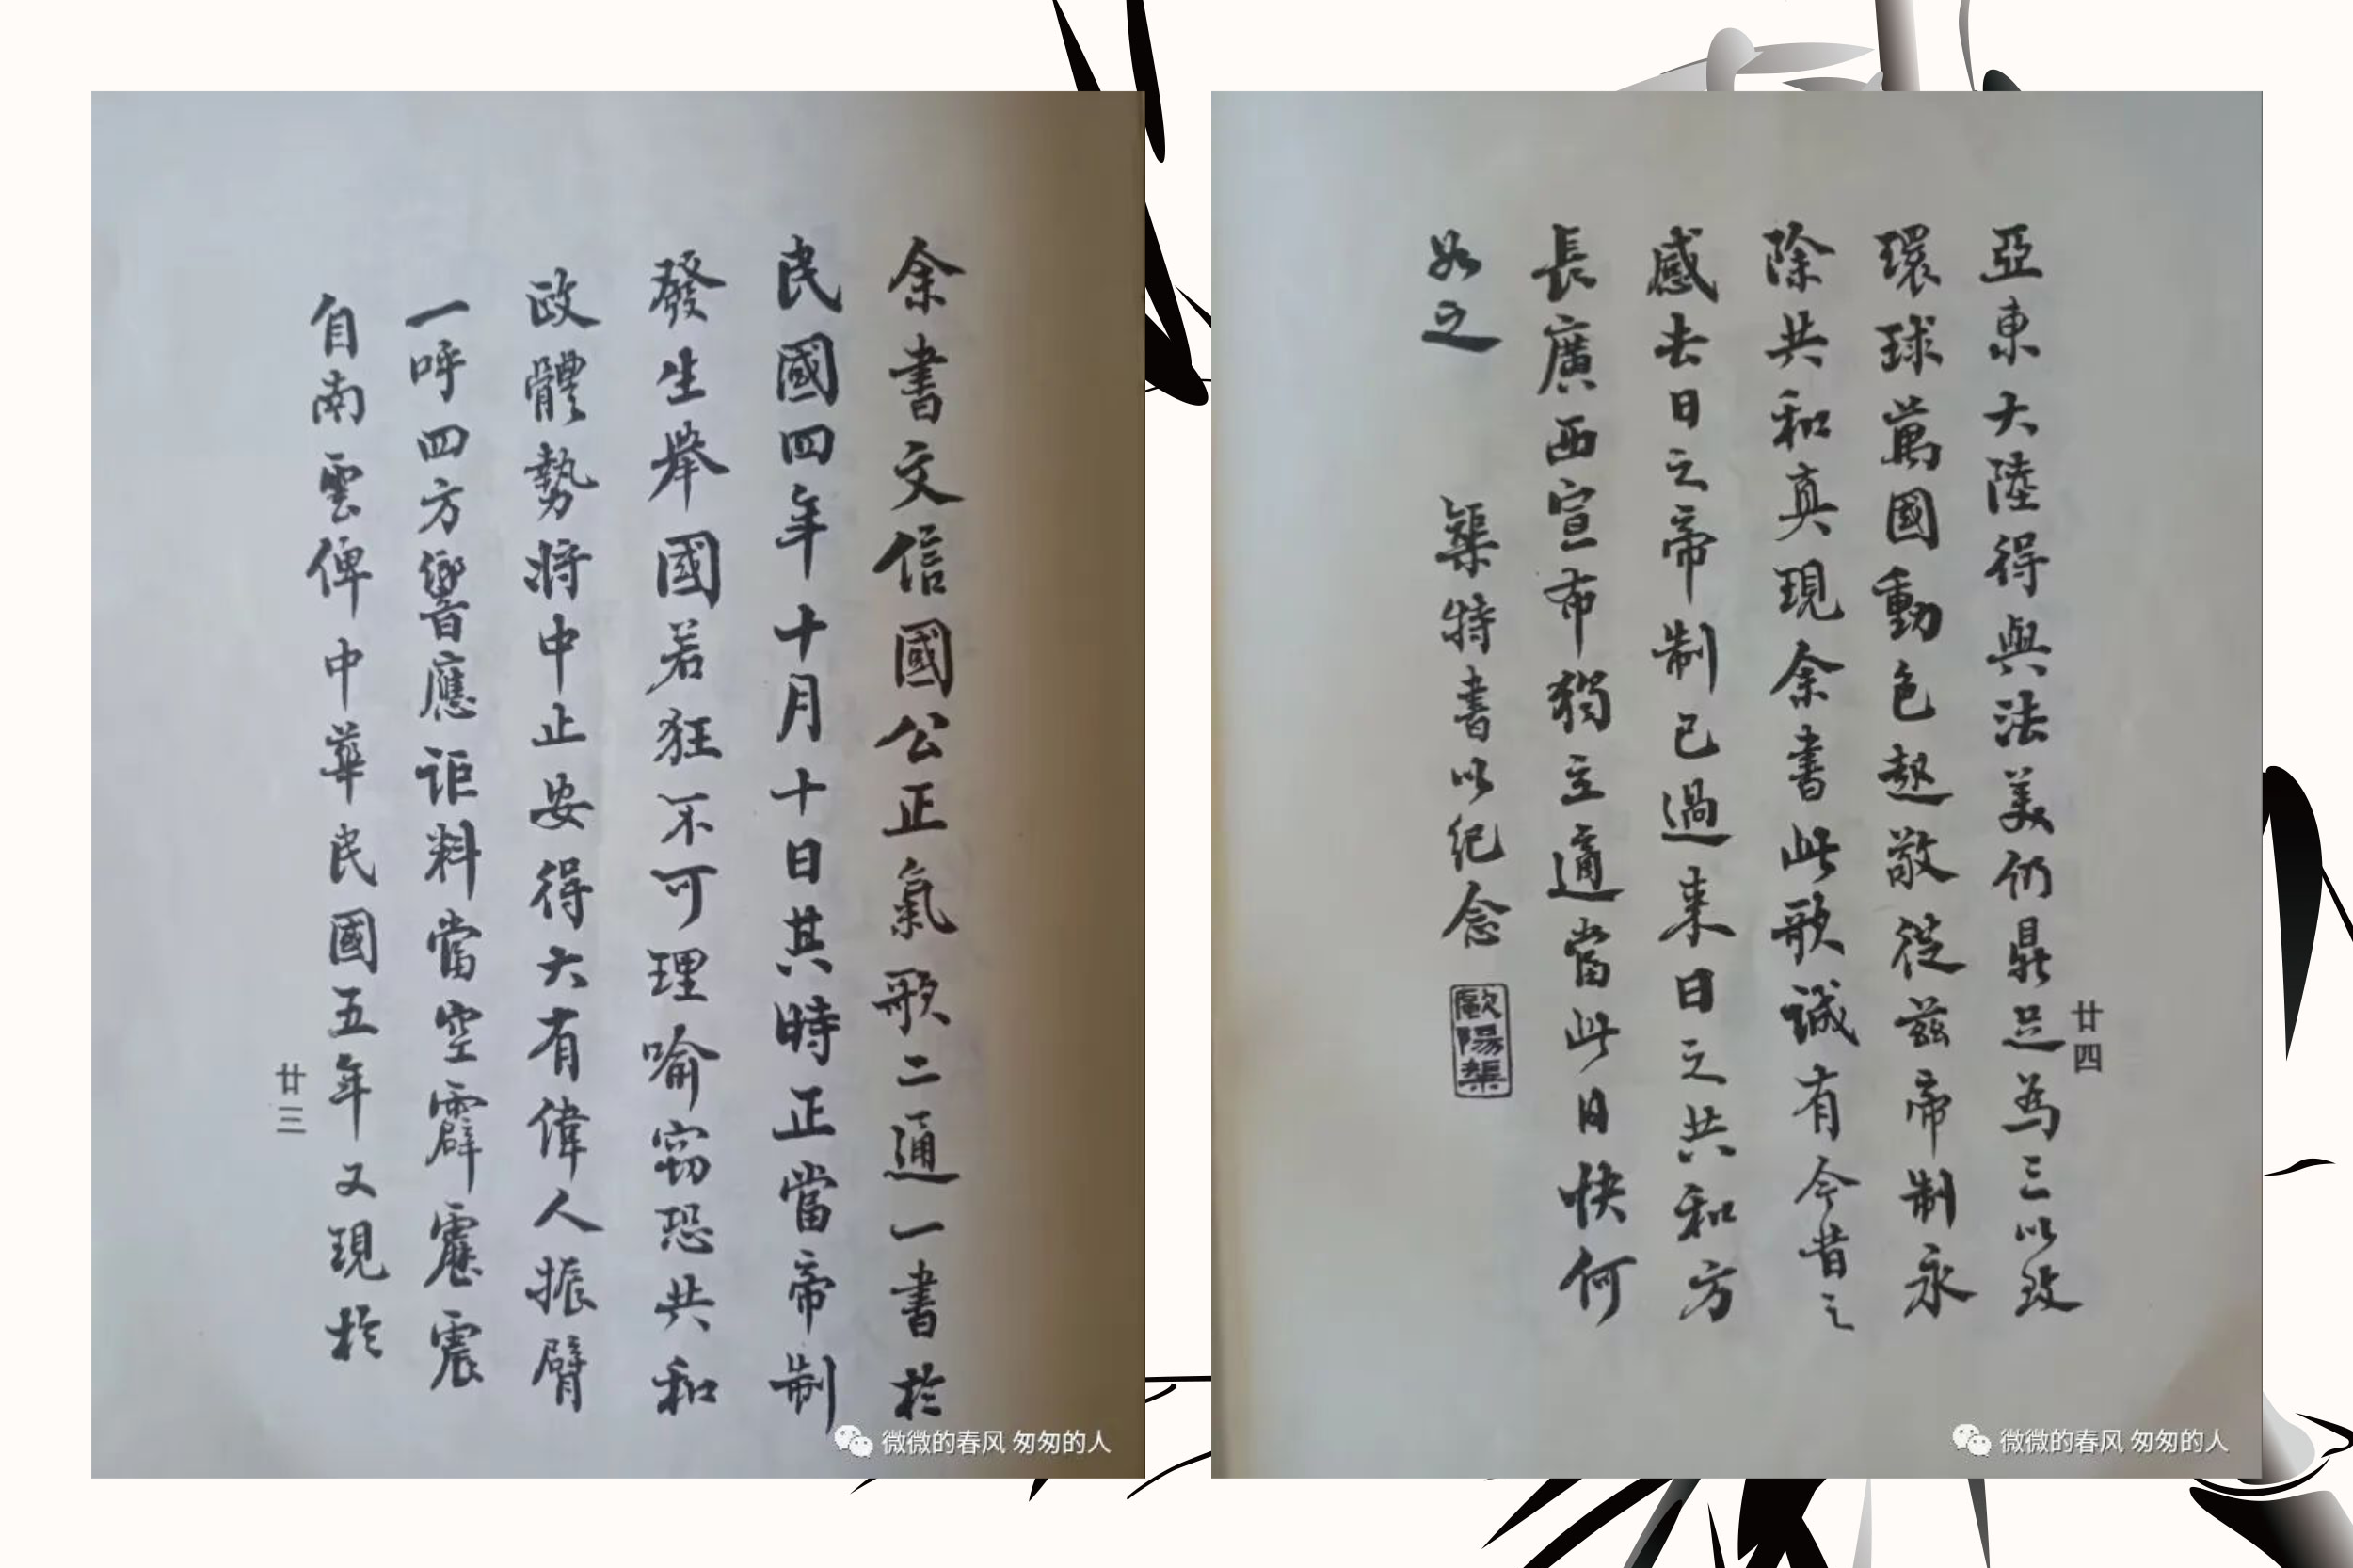 余書文信國公正氣歌二通一書於
民國四年十月十日其時正當帝制
發生舉國若狂不可理喻竊恐共和
政體勢將中止安得大有偉人振臂
一呼四方響應詎料當空霹靂震
自南雲俾中華民國五年又現於
廿三
微微的春风 匆匆的人
廿四
亞東大陸得與法美仍鼎足為三以致
環球萬國動色起敬從茲帝制永
除共和真現余書此歌誠有今昔之
感去日之帝制已過来日之共和方
長廣西宣布獨立適當此日快何
如之
榘特書以纪念
歐陽榘
微微的春风 匆匆的人